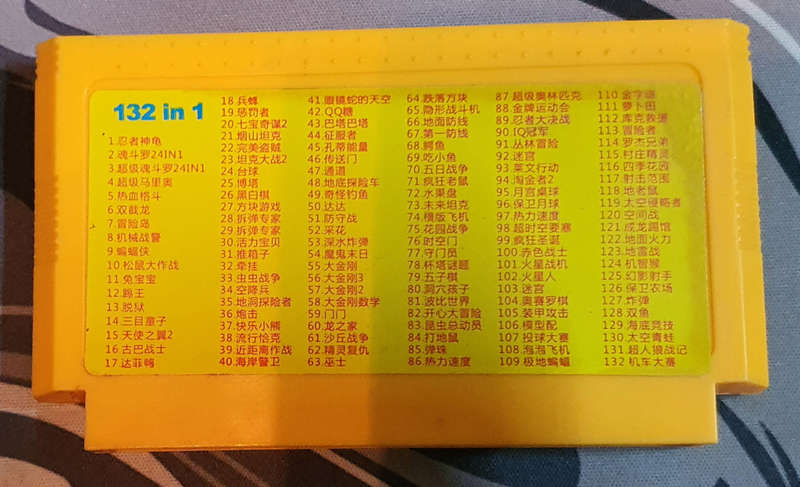 132 in 1
1.忍者神龟
2.魂斗罗24IN1
3.超级魂斗罗24IN1
4.超级马里奥
5.热血格斗
6.双截龙
7.冒险岛
8.机械战警
9.蝙蝠侠
10.松鼠大作战
11.兔宝宝
12.踢王
13.脱狱
14.三目童子
15.天使之翼2
16.古巴战士
17.达菲鸭
18.兵蜂
19.惩罚者
20.七宝奇谋2
21.烟山坦克
22.完美盗贼
23.坦克大战2
24.台球
25.博塔
26.黑白棋
27.方块游戏
28.拆弹专家
29.拆弹专家
30.活力宝贝
31.推箱子
32.牵挂
33.虫虫战争
34.空降兵
35.地洞探险者
36.炮击
37.快乐小熊
38.流行恰克
39.近距离作战
40.海岸警卫
41.眼镜蛇的天空
42.QQ糖
43.巴塔巴塔
44.征服者
45.孔蒂能量
46.传送门
47.通道
48.地底探险车
49.奇怪钓鱼
50.达达
51.防守战
52.采花
53.深水炸弹
54.魔鬼末日
55.大金刚
56.大金刚3
57.大金刚2
58.大金刚数学
59.门门
60.龙之家
61.沙丘战争
62.精灵复仇
63.巫士
64.跌落方块
65.隐形战斗机
66.地面防线
67.第一防线
68.鳄鱼
69.吃小鱼
70.五日战争
71.疯狂老鼠
72.水果盘
73.未来坦克
74.横版飞机
75.花园战争
76.时空门
77.守门员
78.杯塔谜题
79.五子棋
80.洞穴孩子
81.波比世界
82.开心大冒险
83.昆虫总动员
84.打地鼠
85.弹珠
86.热力速度
87.超级奥林匹克
88.金牌运动会
89.忍者大决战
90.IQ冠军
91.丛林冒险
92.迷宫
93.莱文行动
94.淘金者2
95.月宫桌球
96.保卫月球
97.热力速度
98.超时空要塞
99.疯狂圣诞
100.赤色战士
101.火星战机
102.火星人
103.迷宫
104.奥赛罗棋
105.装甲攻击
106.模型配
107.投球大赛
108.泡泡飞机
109.极地蝙蝠
110.金字塔
111.萝卜田
112.库克救援
113.冒险者
114.罗杰兄弟
115.村庄精灵
116.四季花园
117.射击范围
118.地老鼠
119.太空侵略者
120.空间战
121.成龙踢馆
122.地面火力
123.地雷战
124.机智猴
125.幻影射手
126.保卫农场
127.炸弹
128.双鱼
129.海底竞技
130.太空青蛙
131.超人狼战记
132.机车大赛